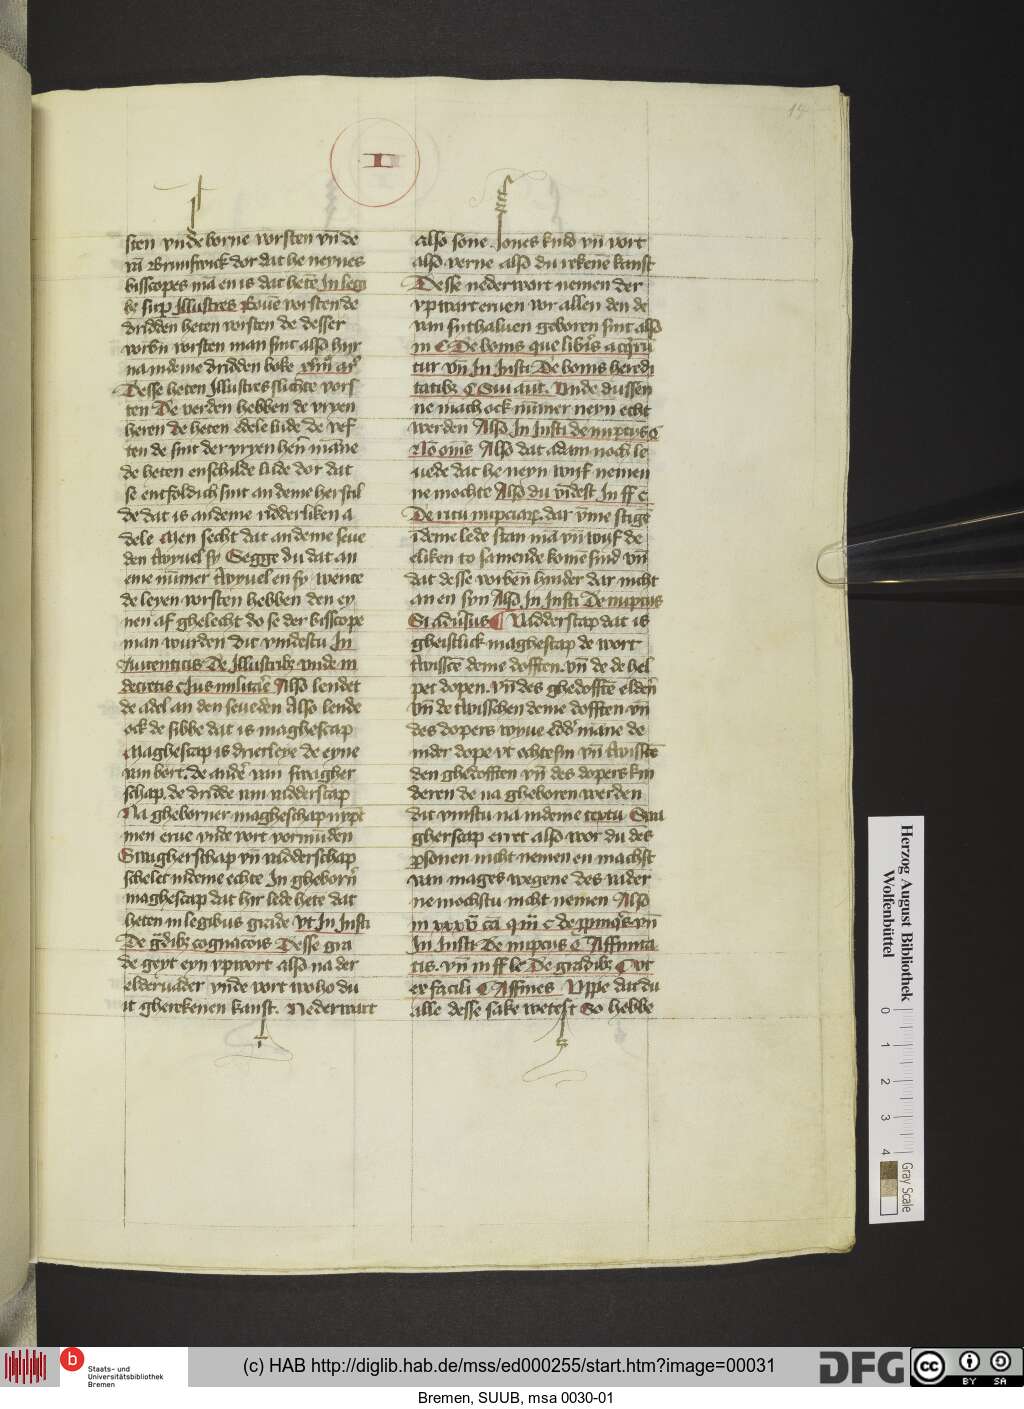 14
II
sten vnde borne vorsten vnde
vā Brunswick dor dat he neynes
bisscopes mā en is dat hetē In leg
be sup̄ Illustres Bouē vorsten de
dridden heten vorsten de desser
vorbn̄ vorsten man sint also hijr
na in deme dridden boke
Desse heten Illustres slichte vors
ten De verden hebben de vryen
heren de heten edele lude de vef
ten de sint der vryen hēn mānne
de heten enschilde lude dor dat
se entfoldich sint an deme herschil
de dat is an deme ridderliken a
dele Men secht dat an deme seue
den twyuel sy Segge du dat an
eme nūmer twyuel en sy wente
de leyen vorsten hebben den ey
nen af ghelecht do se der bisscope
man wurden dit vindestu In
Autenticis De Illustribꝫ vnde in
decretis c Ius militār̄e Also lendet
de adel an den seueden Also lende
ock de sibbe dat is maghescap
Maghescap is drierleye de eyne
van bort. de andēr van swagher
schap. de dridde van vadderscap
Na gheborner magheschap nypt
men erue vnde vort vormūden
Swagherschap vn̄ vadderschap
schelet in deme echte In ghebornr̄
maghescap dat hir lede hete dat
heten in legibus grade vt In Insti
De gr̄dibꝫ cognac̄ois Desse gra
de geyt eyn vpwort also na der
eldervader vnde vort wo ho du
it gherekenen kanst. Nederwart
also sone. sones kind vn̄ vort
also verne also du rekenē kanst
Desse nederwart nemen der
vpwart eruen vor allen den de
van sithaluen geboren sint also
in C De bonis que libīs acqru
tur vn̄ In Insti De bonis heredi
tatibꝫ C Sui aut. Vnde dussen
ne mach ock nūmer neyn echt
werden Also In Insti de nuptijs C
Nō om̄is Also dat adam noch le
uede dat he neyn wijf nemen
ne mochte Also du vīdest In ff C
De ritu nupciarꝫ. dar vme stigē
ī deme lede stan mā vn̄ wijf de
eliken to samende komē sind vn̄
dat desse vorben̄ hinder dar nicht
an en syn Also In Insti De nuptijs
Si aduſus Vadderscap dat is
gheistlick maghescap de wort
twisscē deme dofften. vn̄ de de hel
pet dopen. vn̄ des ghedofftē eldern̄
vn̄ de twisschen deme dofften vn̄
des dopers wyue eddꝰ māne de
in der dope vt echte sin vn̄ twisscē
den ghedofften vn̄ des dopers kin
deren de na gheboren werden
dit vinstu na in deme textu Swa
gherscap erret also wor du des
ꝑsonen nicht nemen en machst
van mages wegene des vader
ne mochstu nicht nemen Also
in xxxv cā q iij C de ꝓpinq̄s vn̄
In Insti De nuptijs C Affinita
tis. vn̄ in ff le De gradibꝫ C vt
ex facili C Affines Vppe dat du
alle desse sake wetest So hebbe
Herzog August Bibliothek
Wolfenbüttel
0 1 2 3 4
Gray Scale
b
Staats- und
Universitätsbibliothek
Bremen
(c) HAB http://diglib.hab.de/mss/ed000255/start.htm?image=00031
DFG
cc BY SA
Bremen, SUUB, msa 0030-01